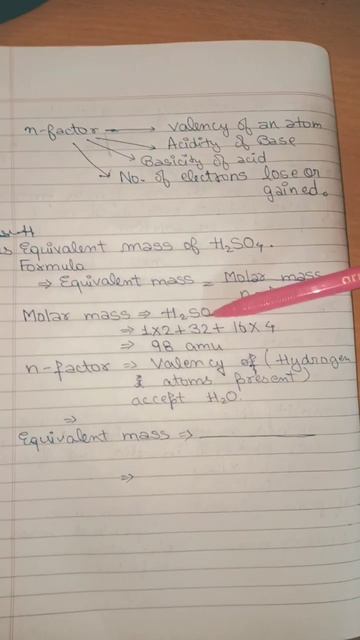 n-factor → valency of an atom
→ Acidity of Base
→ Basicity of acid
→ No. of electrons lose or
gained.
Equivalent mass of H₂SO₄.
Formula
⇒ Equivalent mass = Molar mass
Molar mass ⇒ H₂SO
⇒ 1×2+32+16×4
⇒ 98 amu
n-factor ⇒ Valency of (Hydrogen
atoms present)
accept H₂O.
⇒
Equivalent mass ⇒
⇒